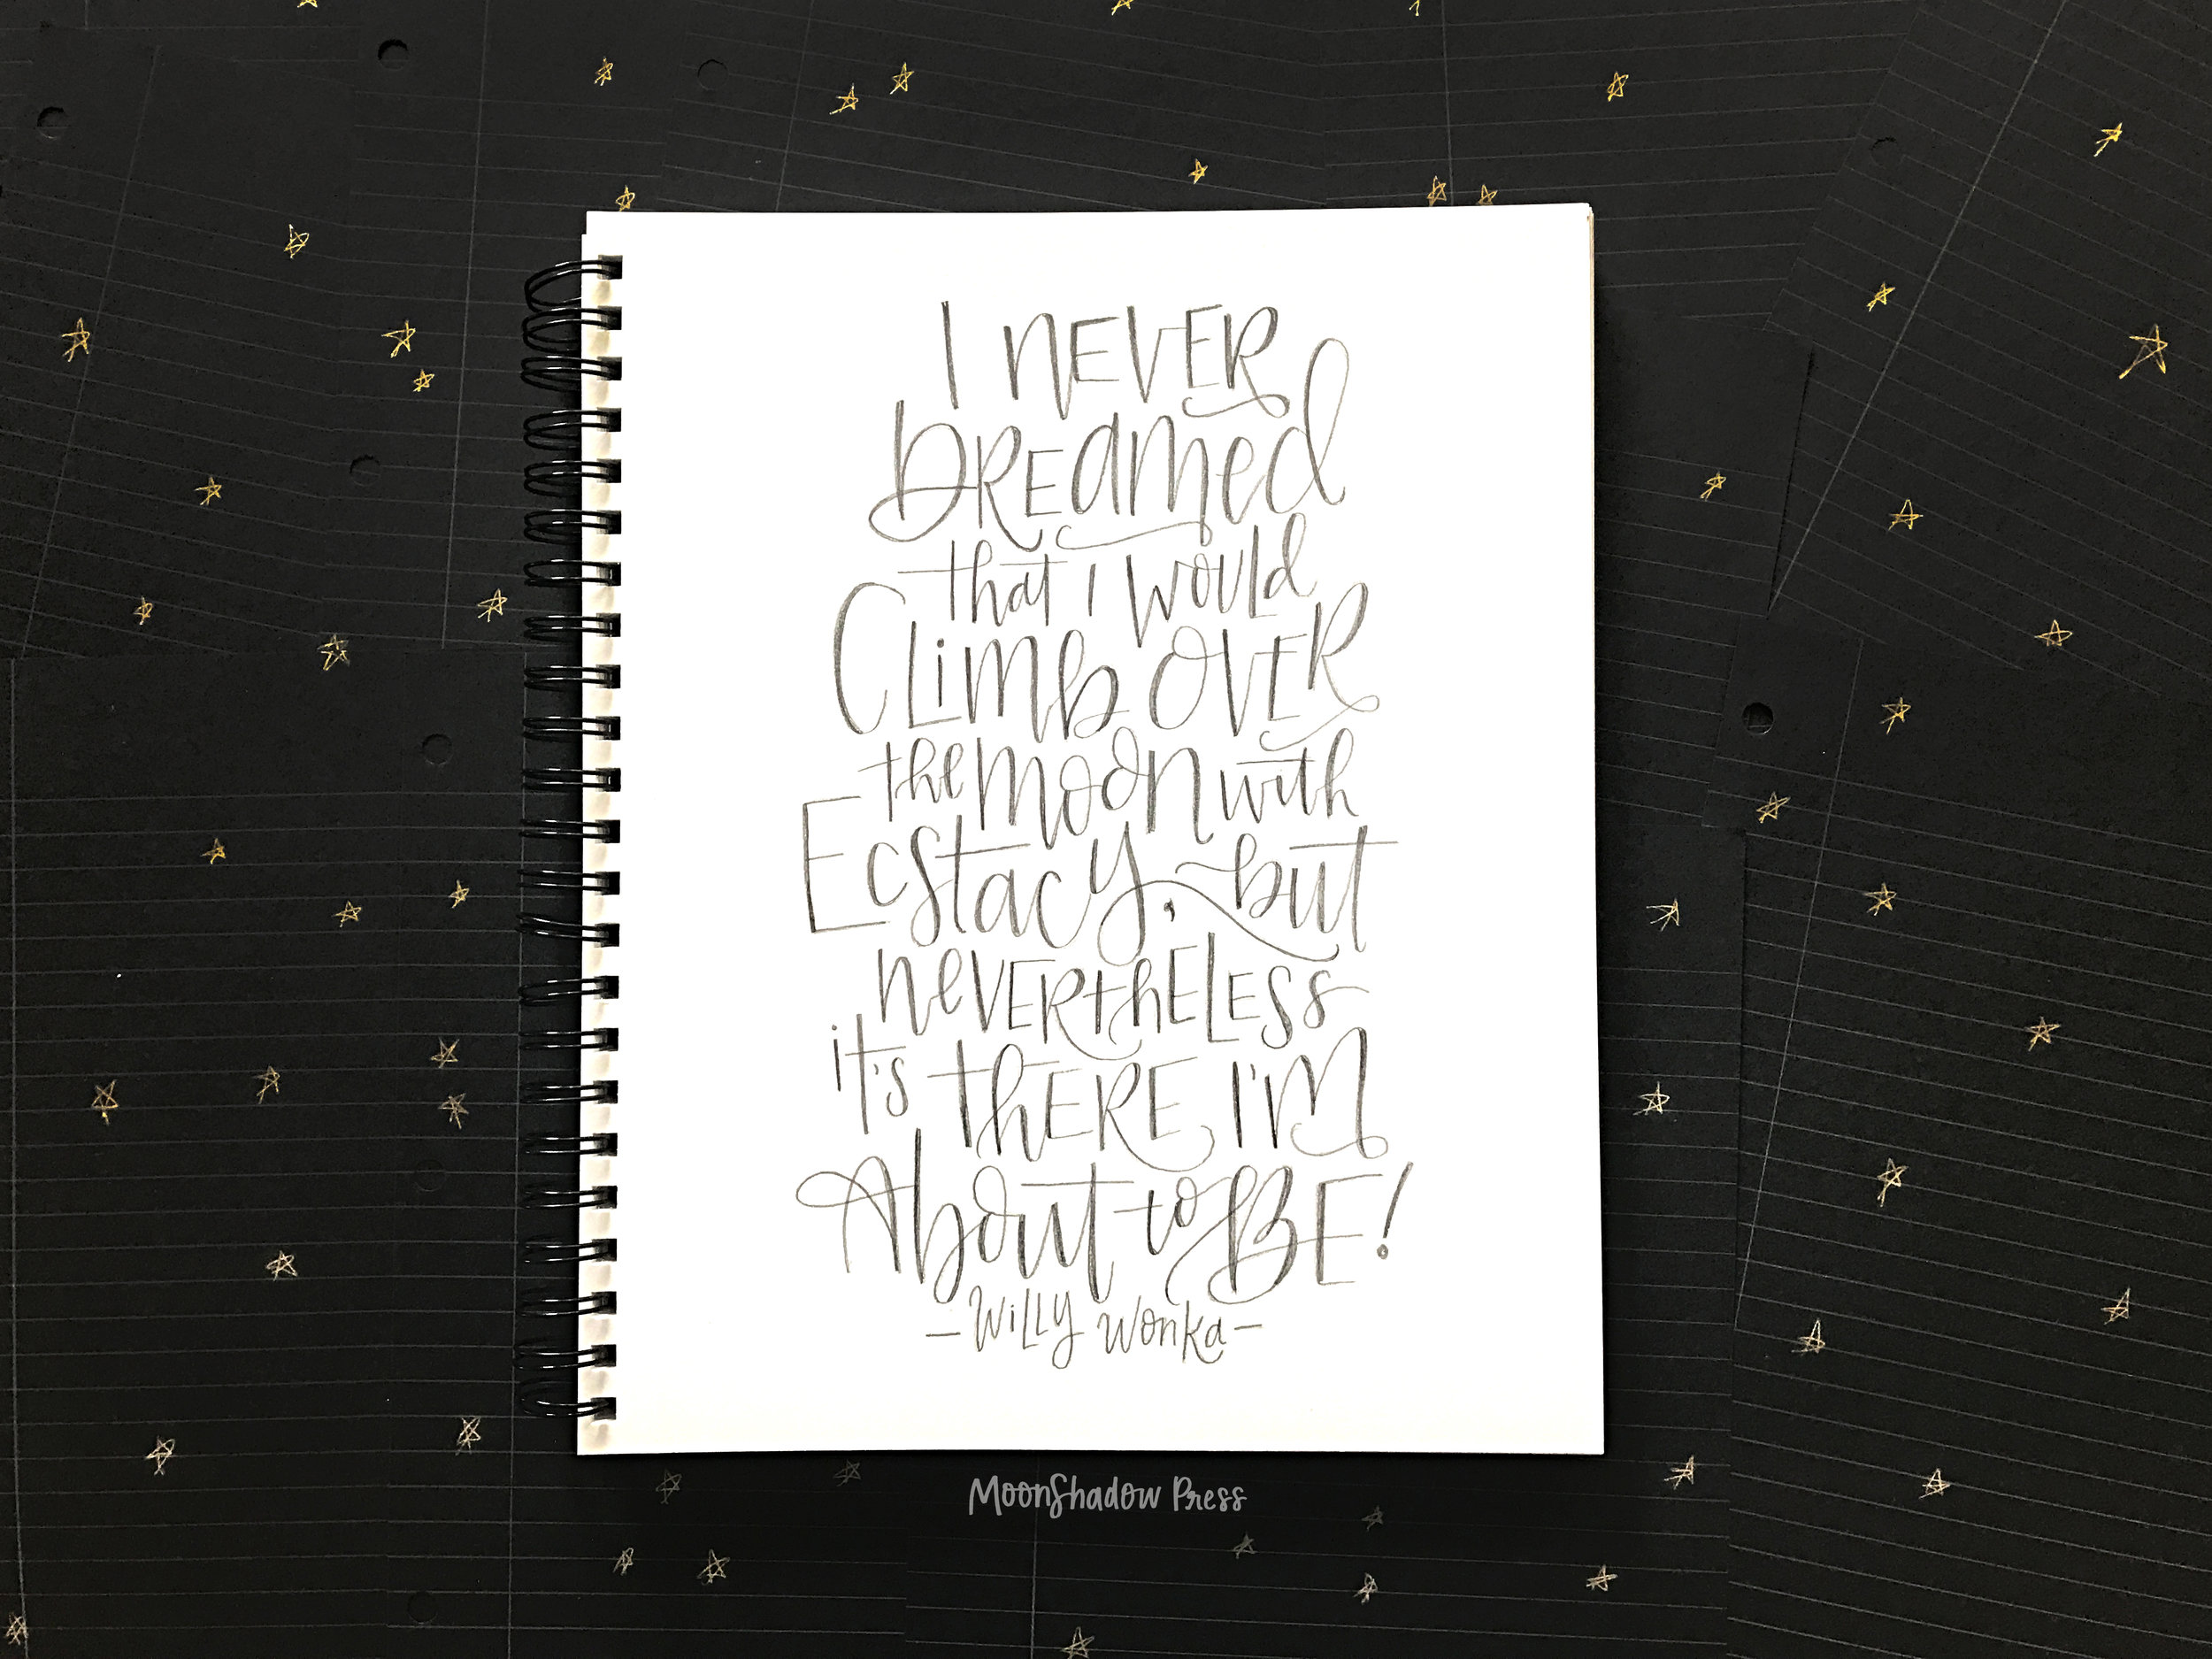 I NEVER
DREAMED
that I would
Climb OVER
the moon with
Ecstacy, but
neVERthELESS
it's thERE I'M
About to BE!
- Willy Wonka -
MoonShadow Press